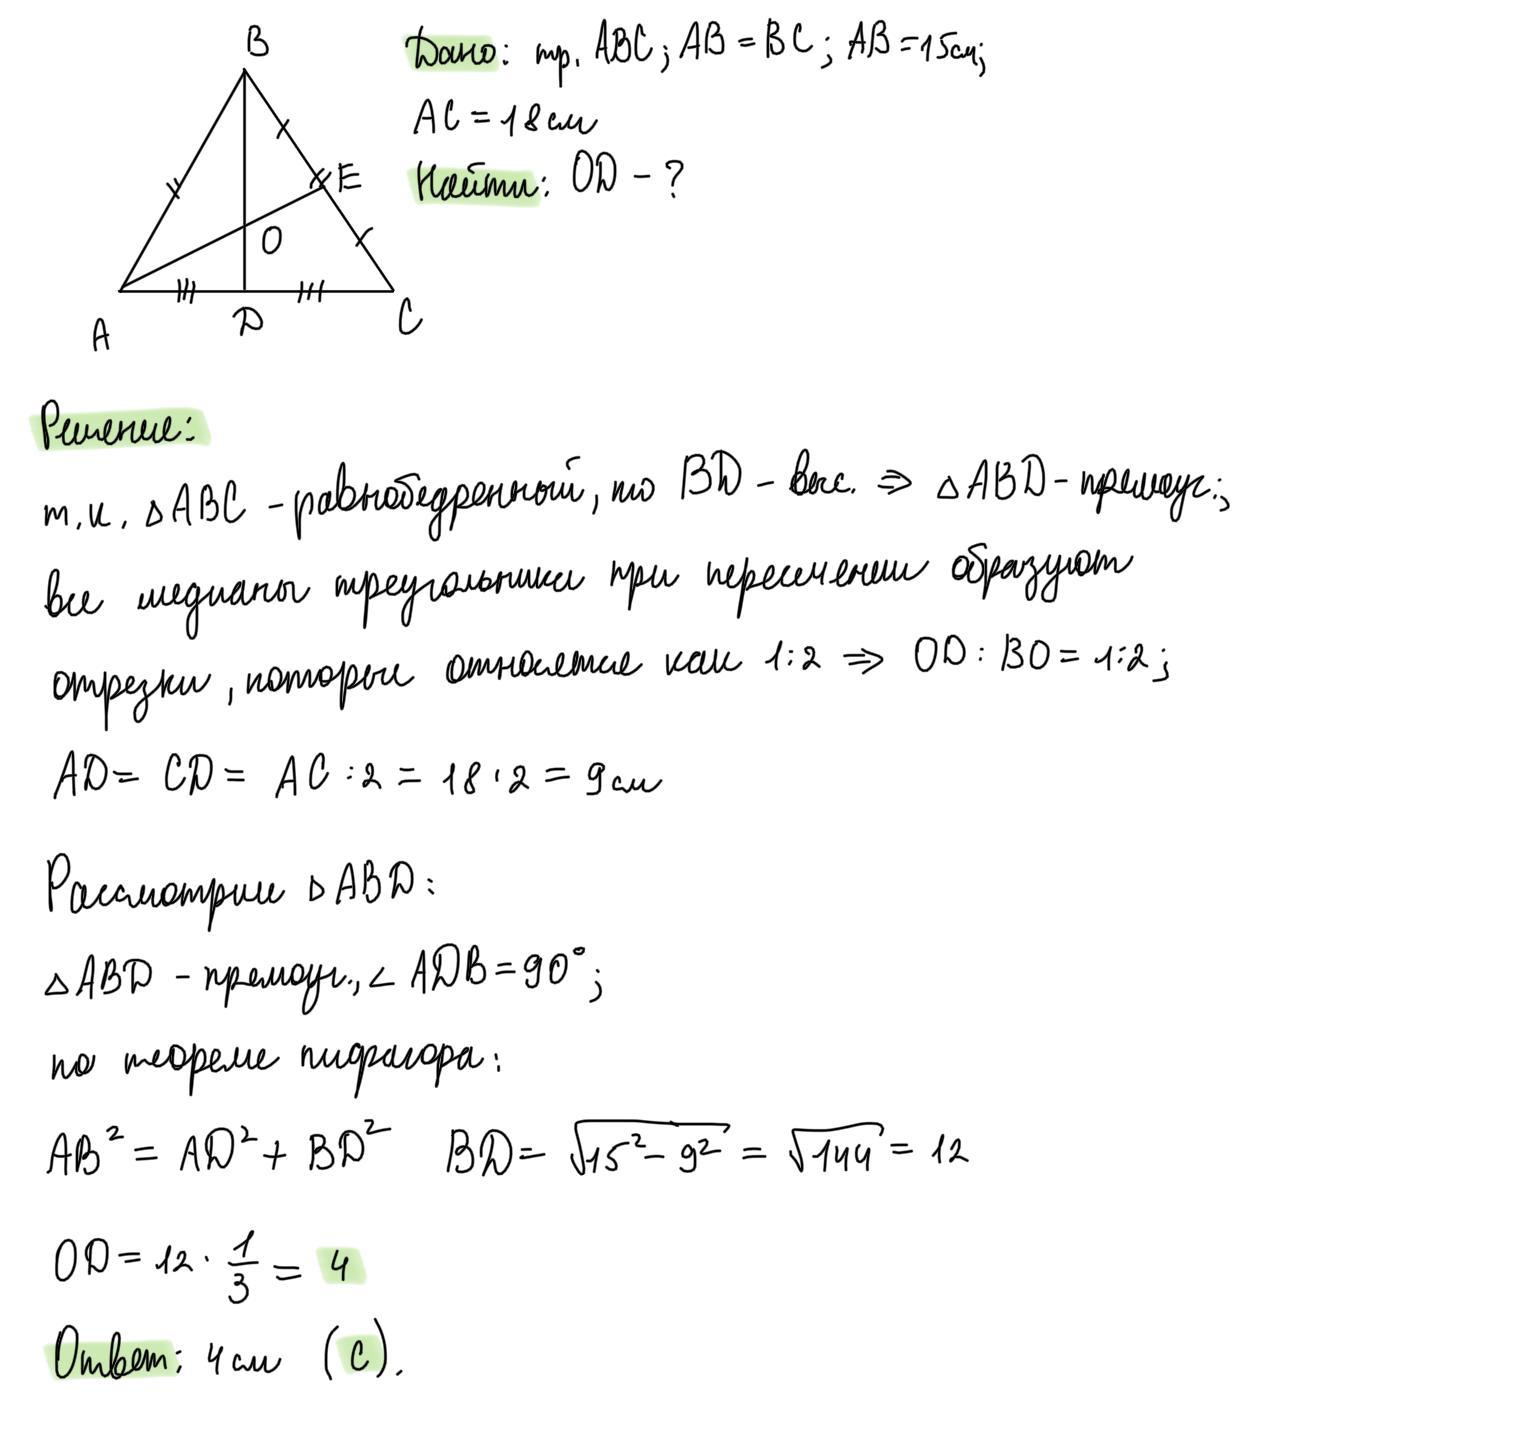 B
Дано: тр. ABC; AB = BC; AB = 15 см;
AC = 18 см
Найти: OD - ?
E
O
A
D
C
Решение:
т.к. △ABC - равнобедренный, то BD - выс. ⇒ △ABD - прямоуг.;
все медианы треугольника при пересечении образуют
отрезки, которые относятся как 1:2 ⇒ OD : BO = 1:2;
AD = CD = AC : 2 = 18 : 2 = 9 см
Рассмотрим △ABD:
△ABD - прямоуг., ∠ADB = 90°;
по теореме пифагора:
AB² = AD² + BD² BD = √15² - 9² = √144 = 12
OD = 12 · 1/3 = 4
Ответ: 4 см (C).